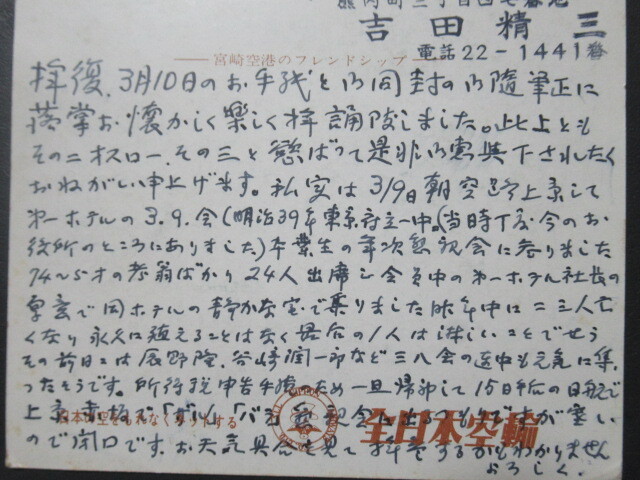 吉田精三
宮崎空港のフレンドシップ
電話22-1441番
拝復、3月10日のお手紙と御同封の御随筆正に
落掌お懐かしく楽しく拝誦致しました。此上とも
その二オスロー、その三と慾ばって是非御恵与下されたく
おねがい申上げます。私実は3/9日朝空路上京して
第一ホテルの3.9.会(明治39年東京府立一中、(当時丁度今のお
役所のところにありました)卒業生の年次懇親会に参りました
74〜5才の老翁ばかり24人出席し会員中の第一ホテル社長の
厚意で同ホテルの静かな室で集りました昨年中に二三人亡
くなり永久に殖えることはなく最后の1人は淋しいことでせう
その前日には辰野隆、谷崎潤一郎など三八会の連中も元気に集
ったそうです。所得税申告手続のため一旦帰卸して15日午后の日航で
上京赤坂で「ボルン」「バヨ 親会に出るつもりですが寒い
ので閉口です。お天気具合を見て拝 をするかもわかりません
よろしく。
日本の空をもれなく
全日本空輸